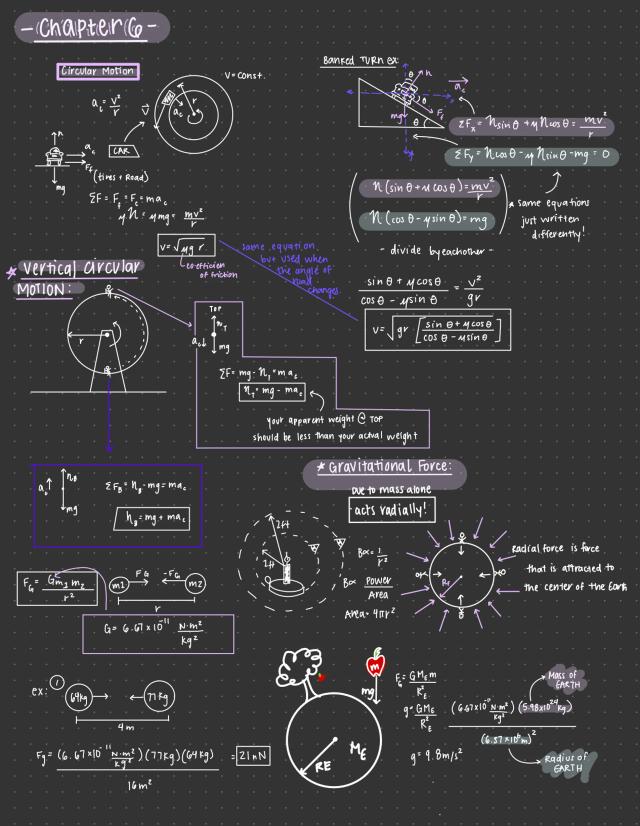 - Chapter 6 -
Circular Motion
a_c = v²/r
v = const.
v
a_c
r
CAR
n
a_c
F_f
(tires + Road)
mg
ΣF = F_f = F_c = ma_c
μN = μmg = mv²/r
v = √μgr
coefficient of friction
same equation, but used when the angle of road changes.
BANKED TURN ex:
θ
n
a_c
θ
F_f
mg
θ
ΣF_x = n sinθ + μ n cosθ = mv²/r
ΣF_y = n cosθ - μ n sinθ - mg = 0
n(sinθ + μ cosθ) = mv²/r
n(cosθ - μ sinθ) = mg
* same equations
just written
differently!
- divide by each other -
sinθ + μ cosθ / cosθ - μ sinθ = v²/gr
v = √gr [sinθ + μ cosθ / cosθ - μ sinθ]
* Vertical Circular
MOTION:
r
TOP
n_T
a_c
mg
ΣF = mg - n_T = ma_c
n_T = mg - ma_c
your apparent weight @ TOP
should be less than your actual weight
a_c
n_B
mg
ΣF_B = n_B - mg = ma_c
n_B = mg + ma_c
* Gravitational Force:
Due to mass alone
acts radially!
F_G = Gm₁m₂/r²
m1
F_G
-F_G
m2
r
G = 6.67 x 10⁻¹¹ N·m²/kg²
2ft
1ft
B ∝ = 1/r²
B ∝ Power/Area
Area = 4πr²
R_E
Radial force is force
that is attracted to
the center of the Earth
ex: 1
64kg
77kg
4m
F_g = (6.67 x 10⁻¹¹ N·m²/kg²)(77kg)(64kg) / 16m² = 21 nN
m
mg
RE
M_E
F_G = GM_E m/R_E²
g = GM_E/R_E²
g = 9.8 m/s²
(6.67 x 10⁻¹¹ N·m²/kg²)(5.98 x 10²⁴ kg)
(6.37 x 10⁶ m)²
Mass of
EARTH
Radius of
EARTH